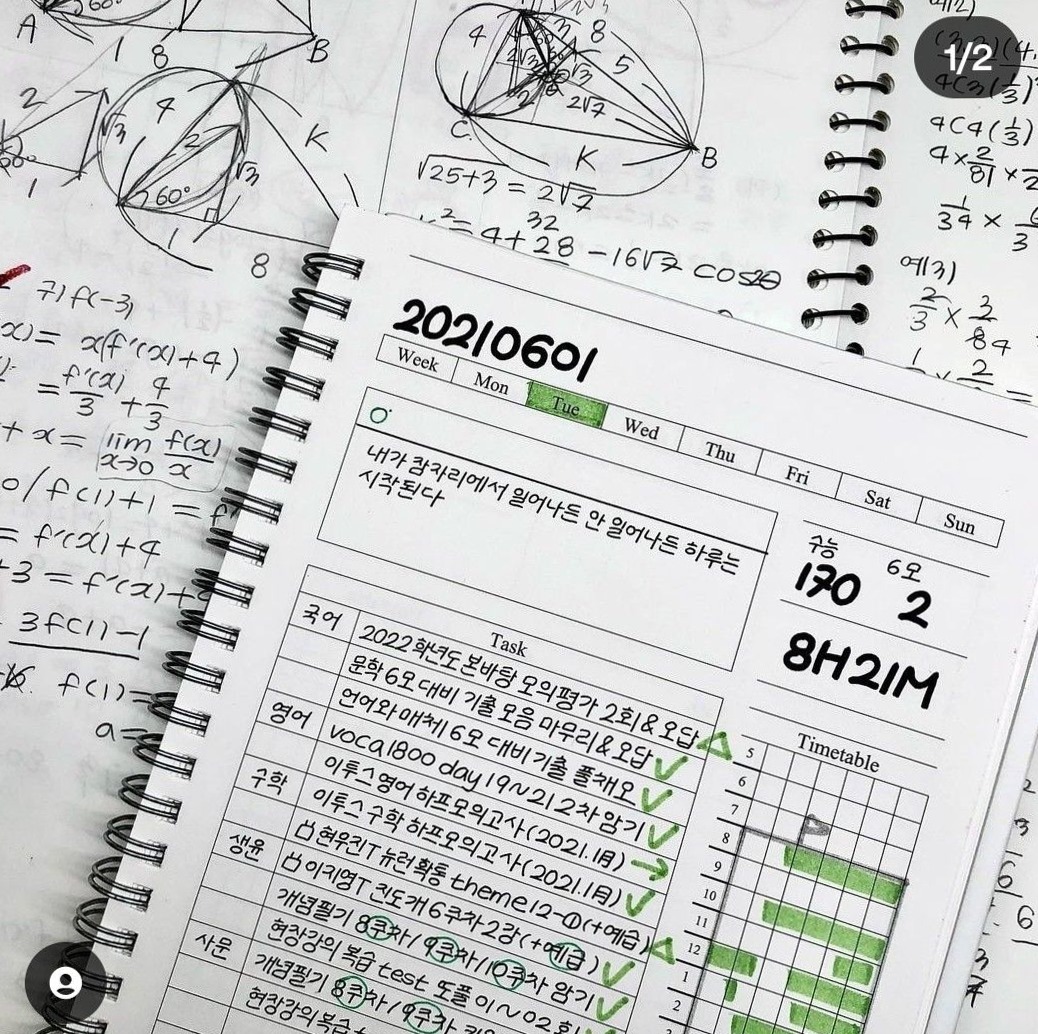 1/2
A
60°
1
8
B
2
√3
4
2
K
60°
√3
1
60°
1
8
4
3
8
5
2√7
2
C
K
B
√25+3 = 2√7
32
= 4+28 -16√7 cos2θ
4C3(1/3)
4C4(1/3)
4×2/81×
1/34 ×
예3)
2/3 × 2/84
7) f(-3)
x(f'(x)+4)
= f'(x)/3 + 4/3
+ x = lim x→0 f(x)/x
0/f(1)+1 = f'
= f'(x)+4
+3 = f'(x)+
3f(1)-1
f(1)=
a=
20210601
Week Mon Tue Wed Thu Fri Sat Sun
내가 잠자리에서 일어나든 안 일어나든 하루는
시작된다
수능 6모
170 2
8H21M
Task
국어 2022학년도 본바탕 모의평가 2회&오답 △
문학 6모 대비 기출 모음 마무리&오답 ✓
언어와 매체 6모 대비 기출 풀채오 ✓
영어 voca1800 day 19~21 2차 암기 ✓
이투스 영어 하프모의고사(2021.1月) →
수학 이투스 수학 하프모의고사(2021.1月) ✓
현우진T 뉴런 확통 theme12-①(+예급) △
생윤 이지영T 진도개 6주차 2강(+예급) ✓
개념필기 8주차/9주차/10주차 암기 ✓
현장강의 복습 test 또풀 01~02회 ✓
사문 개념필기 8주차/9주차
현장강의 복습+
Timetable
5
6
7
8
9
10
11
12
1
2
3